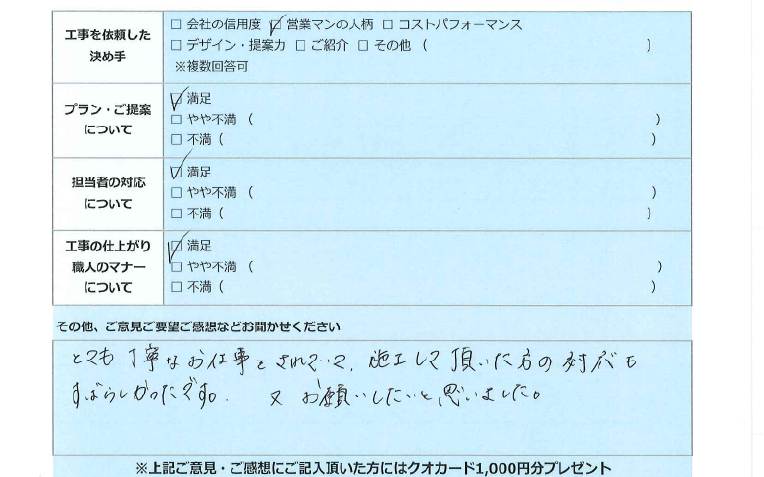 工事を依頼した
決め手
□ 会社の信用度 ☑ 営業マンの人柄 □ コストパフォーマンス
□ デザイン・提案力 □ ご紹介 □ その他（ ）
※複数回答可
プラン・ご提案
について
☑ 満足
□ やや不満（ ）
□ 不満（ ）
担当者の対応
について
☑ 満足
□ やや不満（ ）
□ 不満（ ）
工事の仕上がり
職人のマナー
について
☑ 満足
□ やや不満（ ）
□ 不満（ ）
その他、ご意見ご要望ご感想などお聞かせください
とても丁寧なお仕事をされていて、施工して頂いた方の対応も
すばらしかったです。 又お願いしたいと思いました。
※上記ご意見・ご感想にご記入頂いた方にはクオカード1,000円分プレゼント